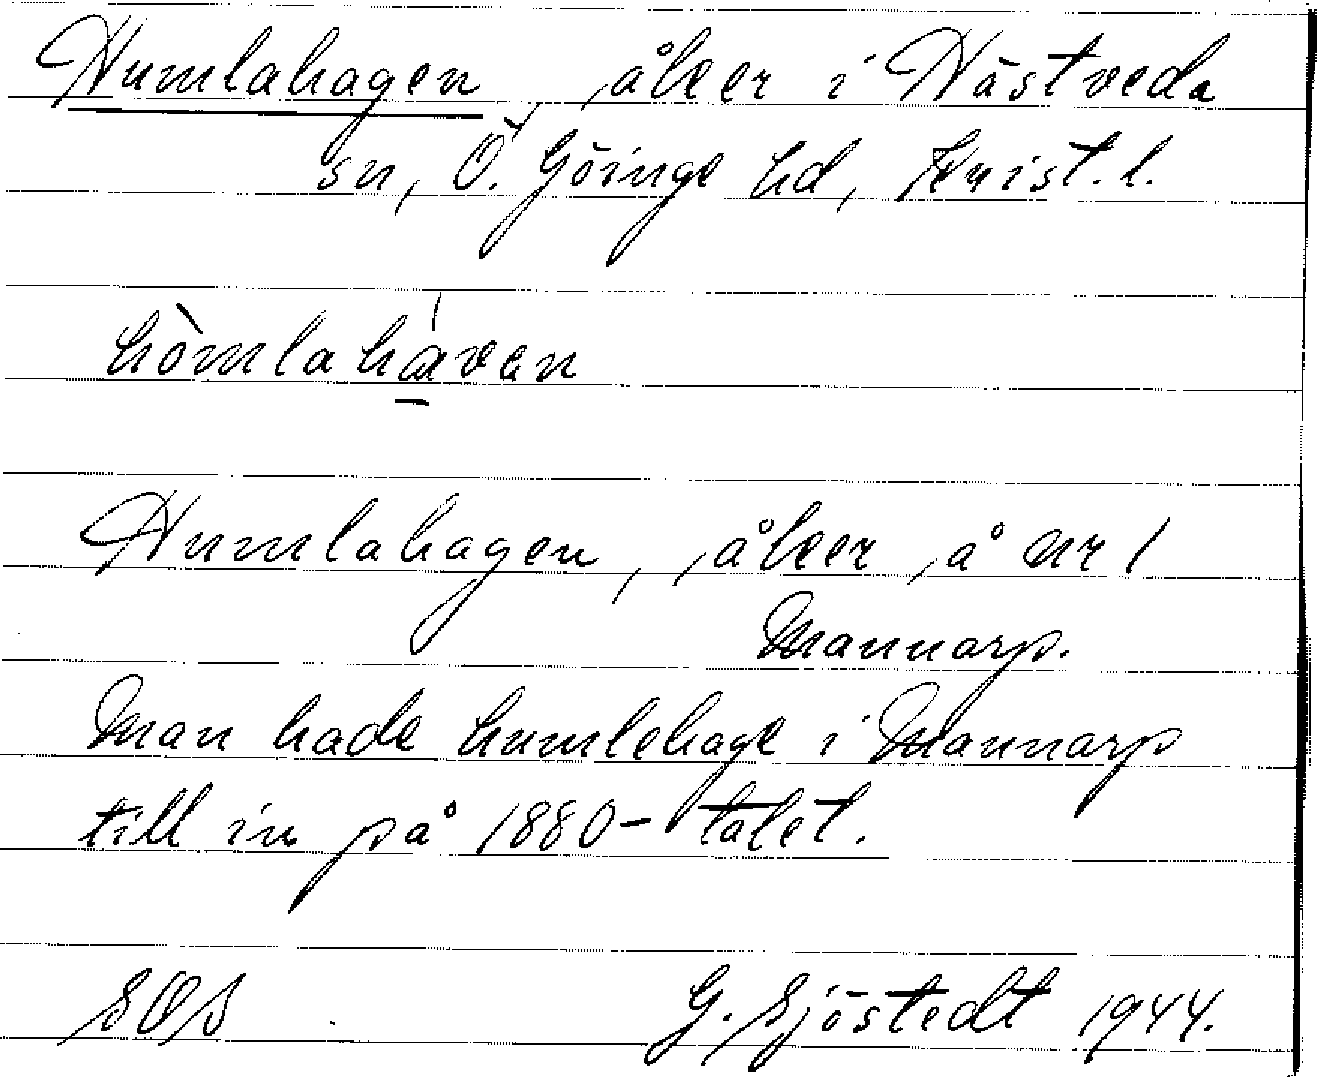 Humlahagen, åker i Hästveda
sn, Ö. Göinge hd, Krist. l.
hòmlahávan
Humlahagen, åker å nr 1
Mannarp.
Man hade humlehage i Mannarp
till in på 1880-talet.
SOS G. Sjöstedt 1944.